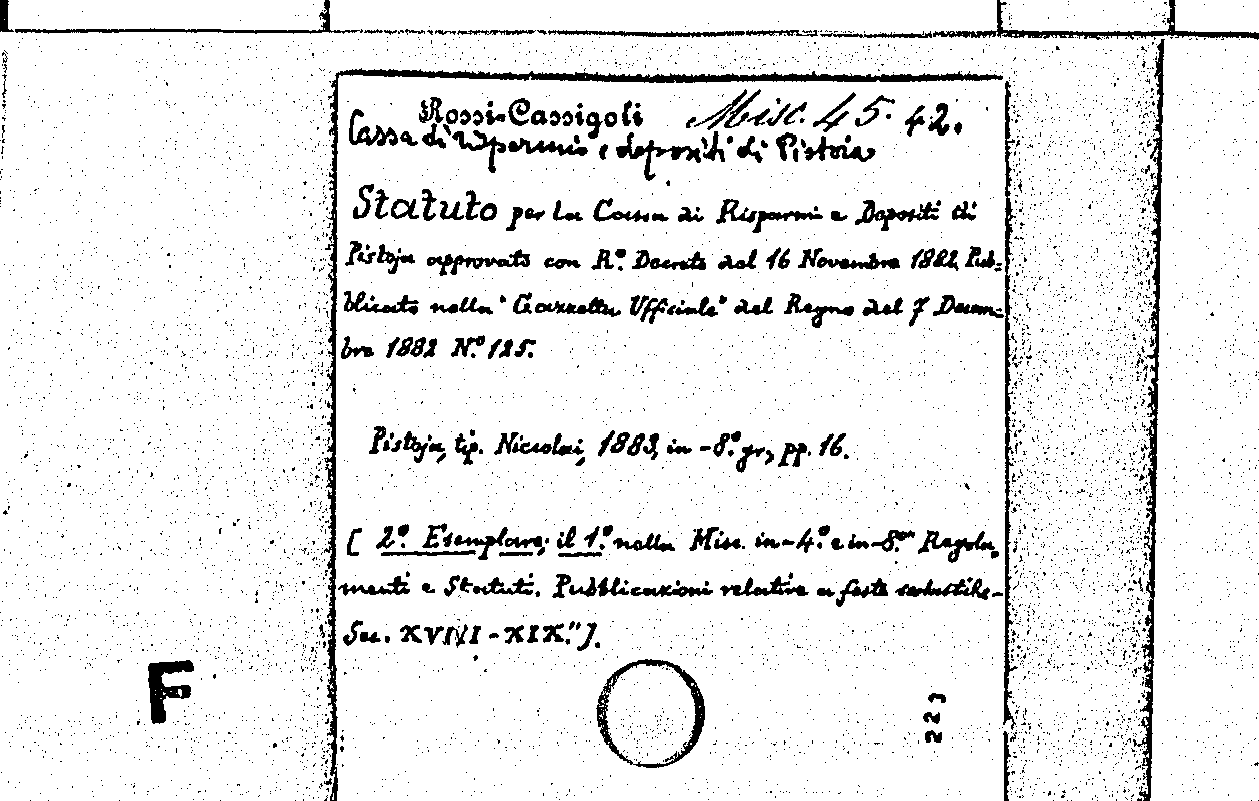 Rossi-Cassigoli Misc. 45. 42.
Cassa di Risparmio e depositi di Pistoia
Statuto per la Cassa di Risparmi e Depositi di
Pistoja approvato con R.º Decreto del 16 Novembre 1882. Pub-
blicato nella "Gazzetta Ufficiale" del Regno del 7 Decem-
bre 1882 N.º 125.
Pistoja, tip. Niccolai, 1883, in-8.º gr., pp. 16.
[ 2.º Esemplare; il 1.º nella Misc. in-4.º e in-8.º " Regola,
menti e Statuti. Pubblicazioni relative a feste scolastiche-
Sec. XVIII-XIX." ].
F
223